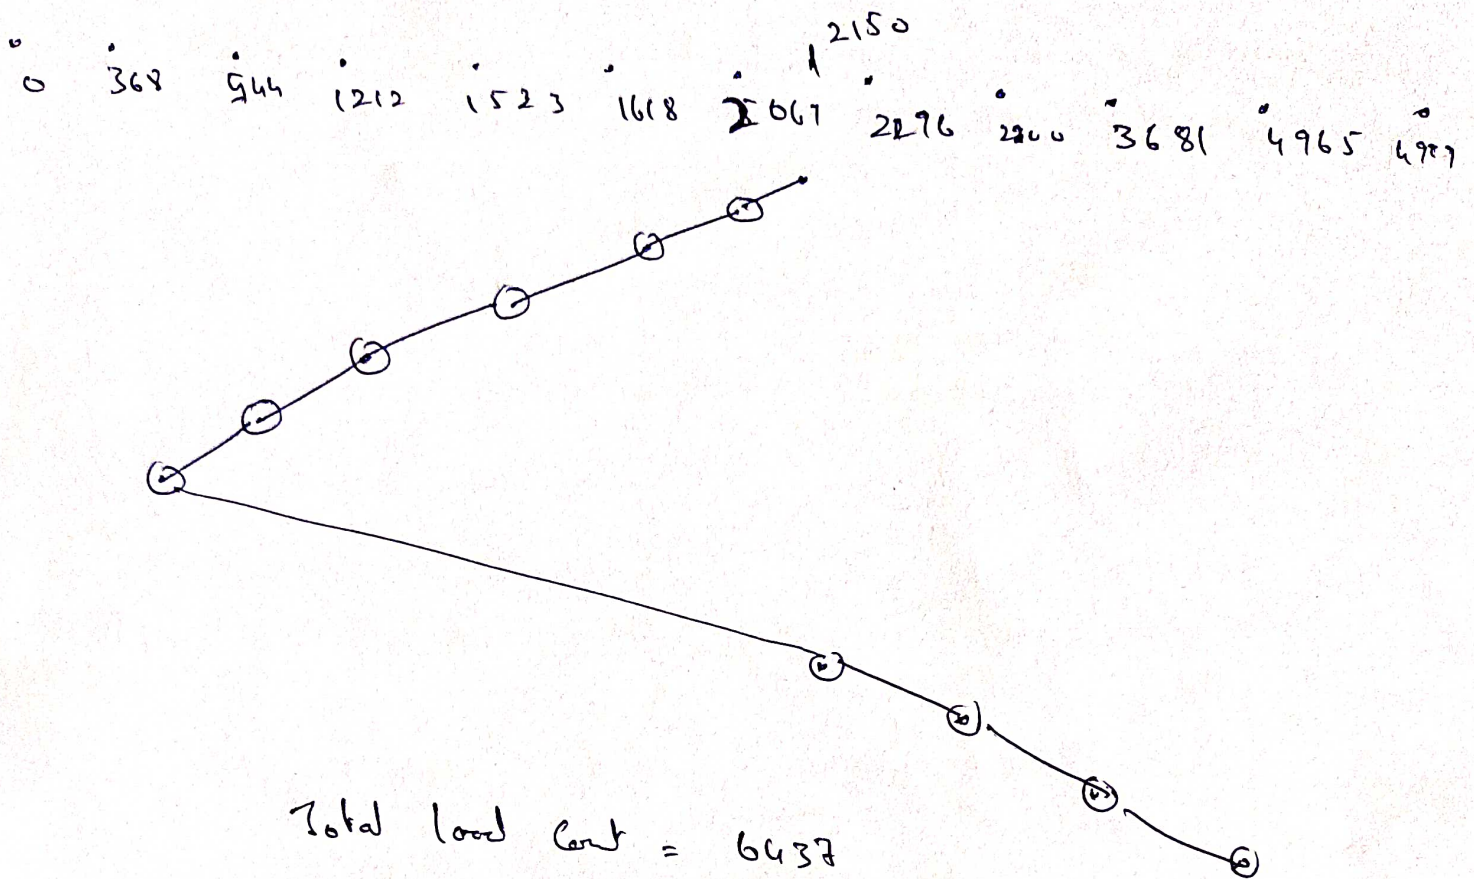 2150
0 368 544 1212 1523 1618 2069 2296 2800 3681 4965 4999
Total load Count = 6437